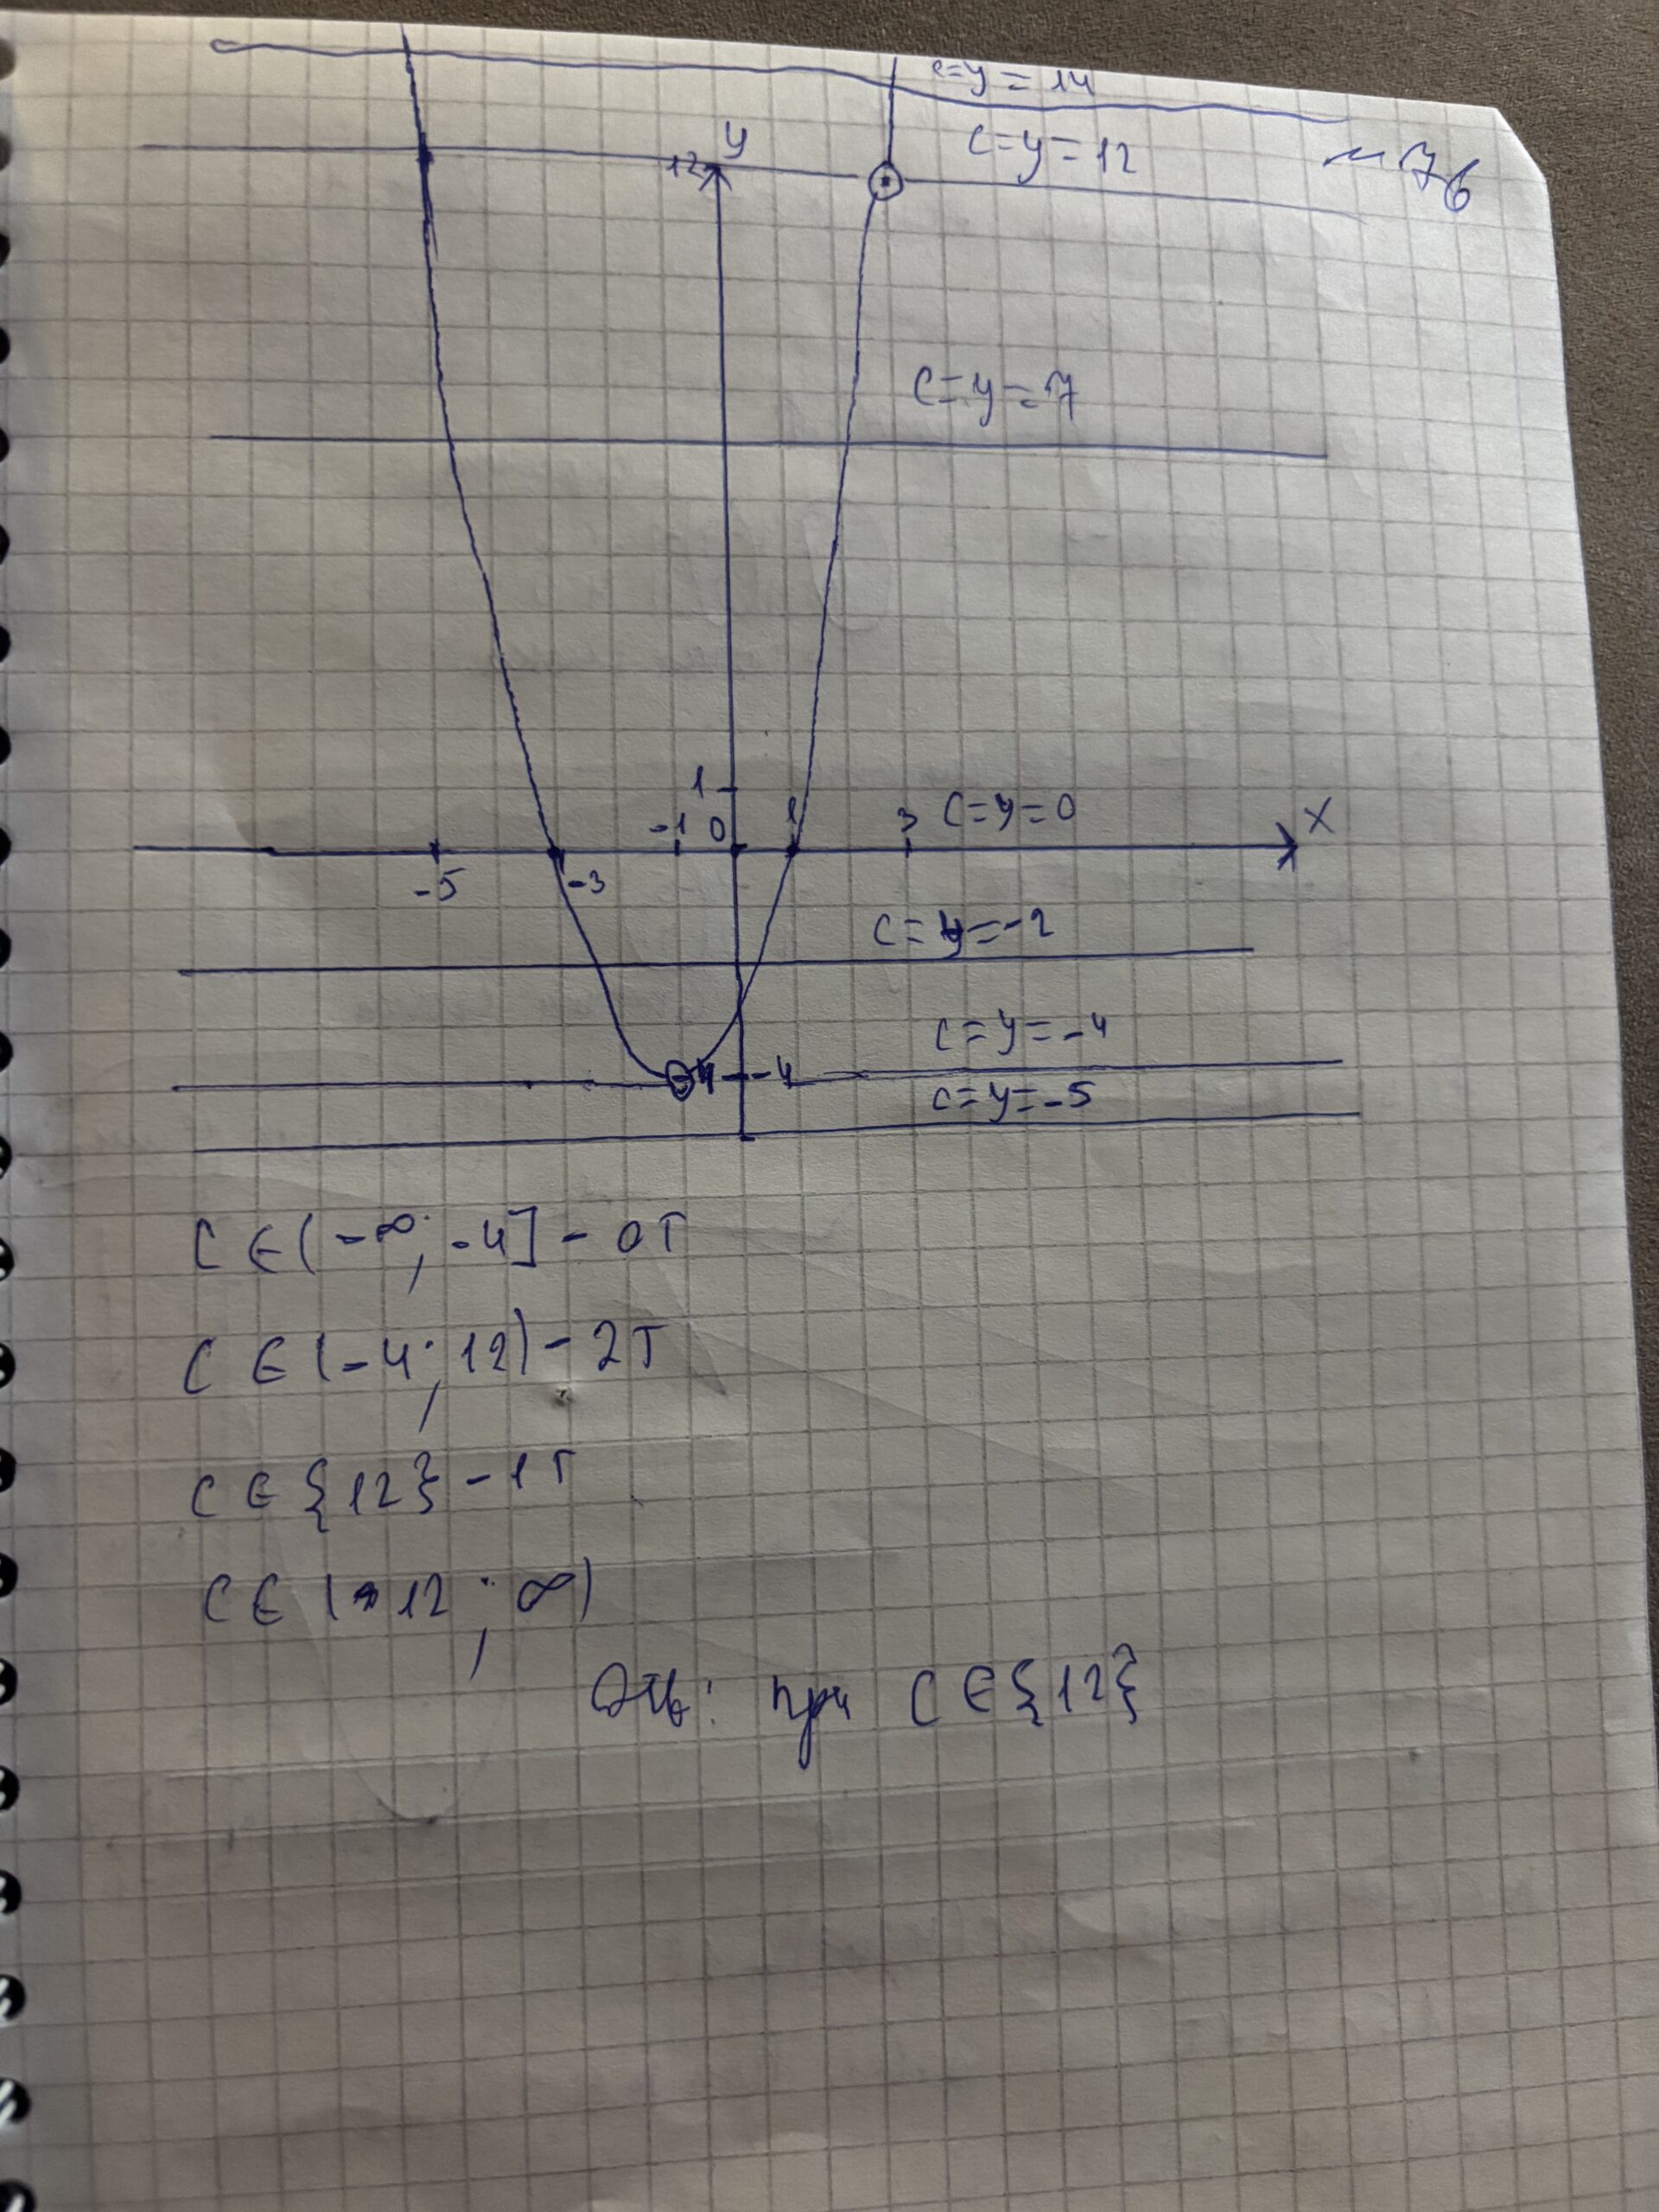 c=y=14
y
12
c=y=12
~76
c=y=7
1
-1 0 1 3 c=y=0 x
-5 -3
c=y=-2
c=y=-4
-4
c=y=-5
C∈(-∞; -4] - 0т
C∈(-4; 12) - 2т
C∈{12} - 1т
C∈(12; ∞)
Отв: при C∈{12}